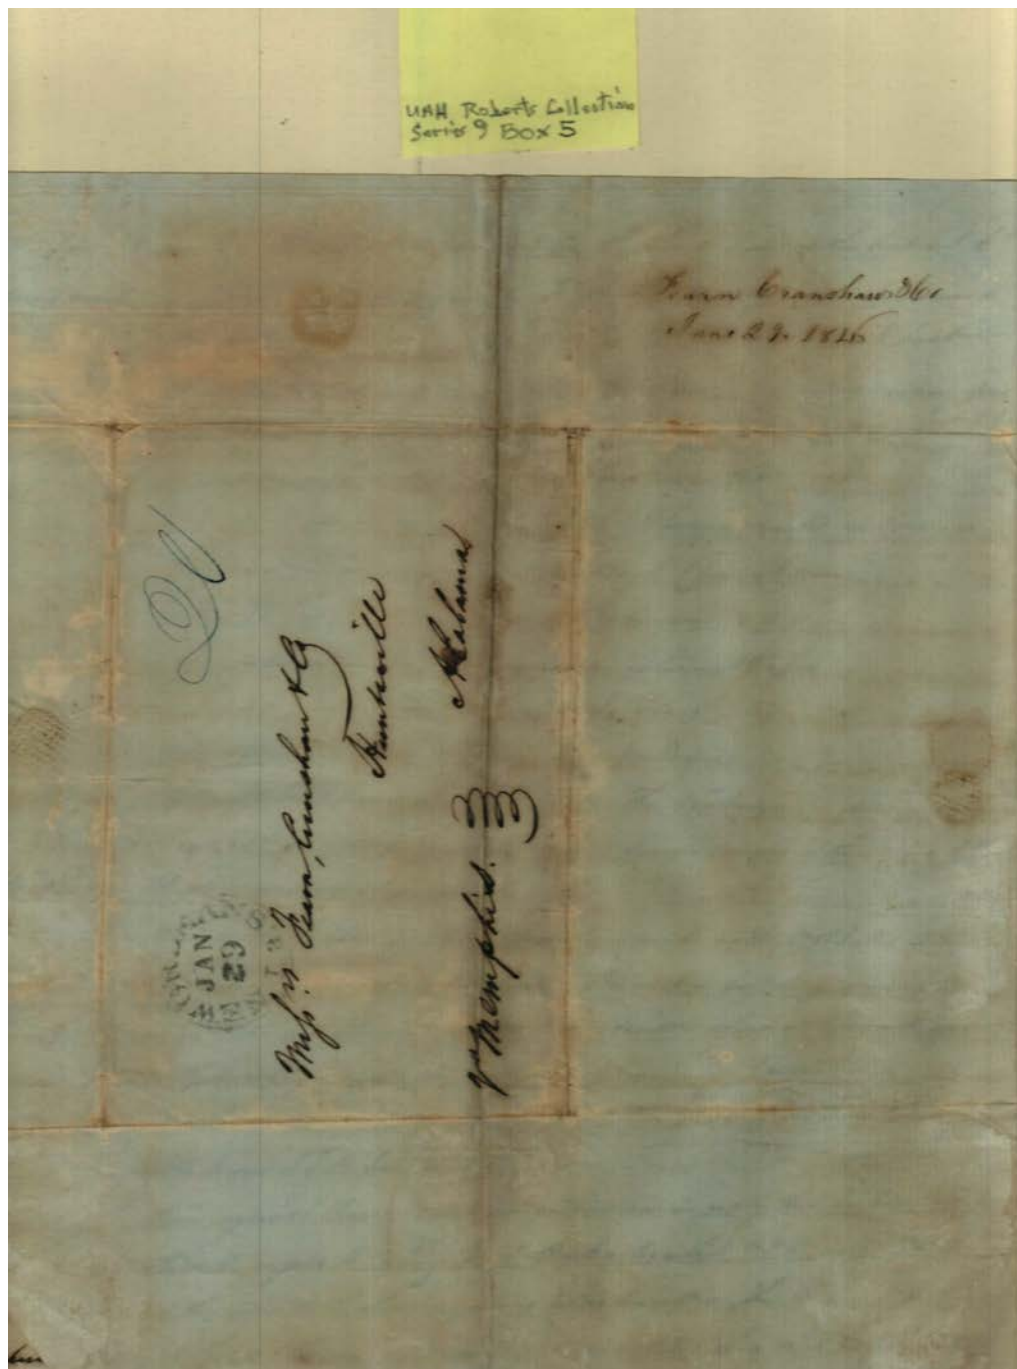 UAH Roberts Collection
Series 9 Box 5
Fearn Cranshaw &Co
Jan 29. 1846
20
Mess.rs Fearn, Crenshaw & Co
Huntsville
Alabama
via Memphis.
JAN
29